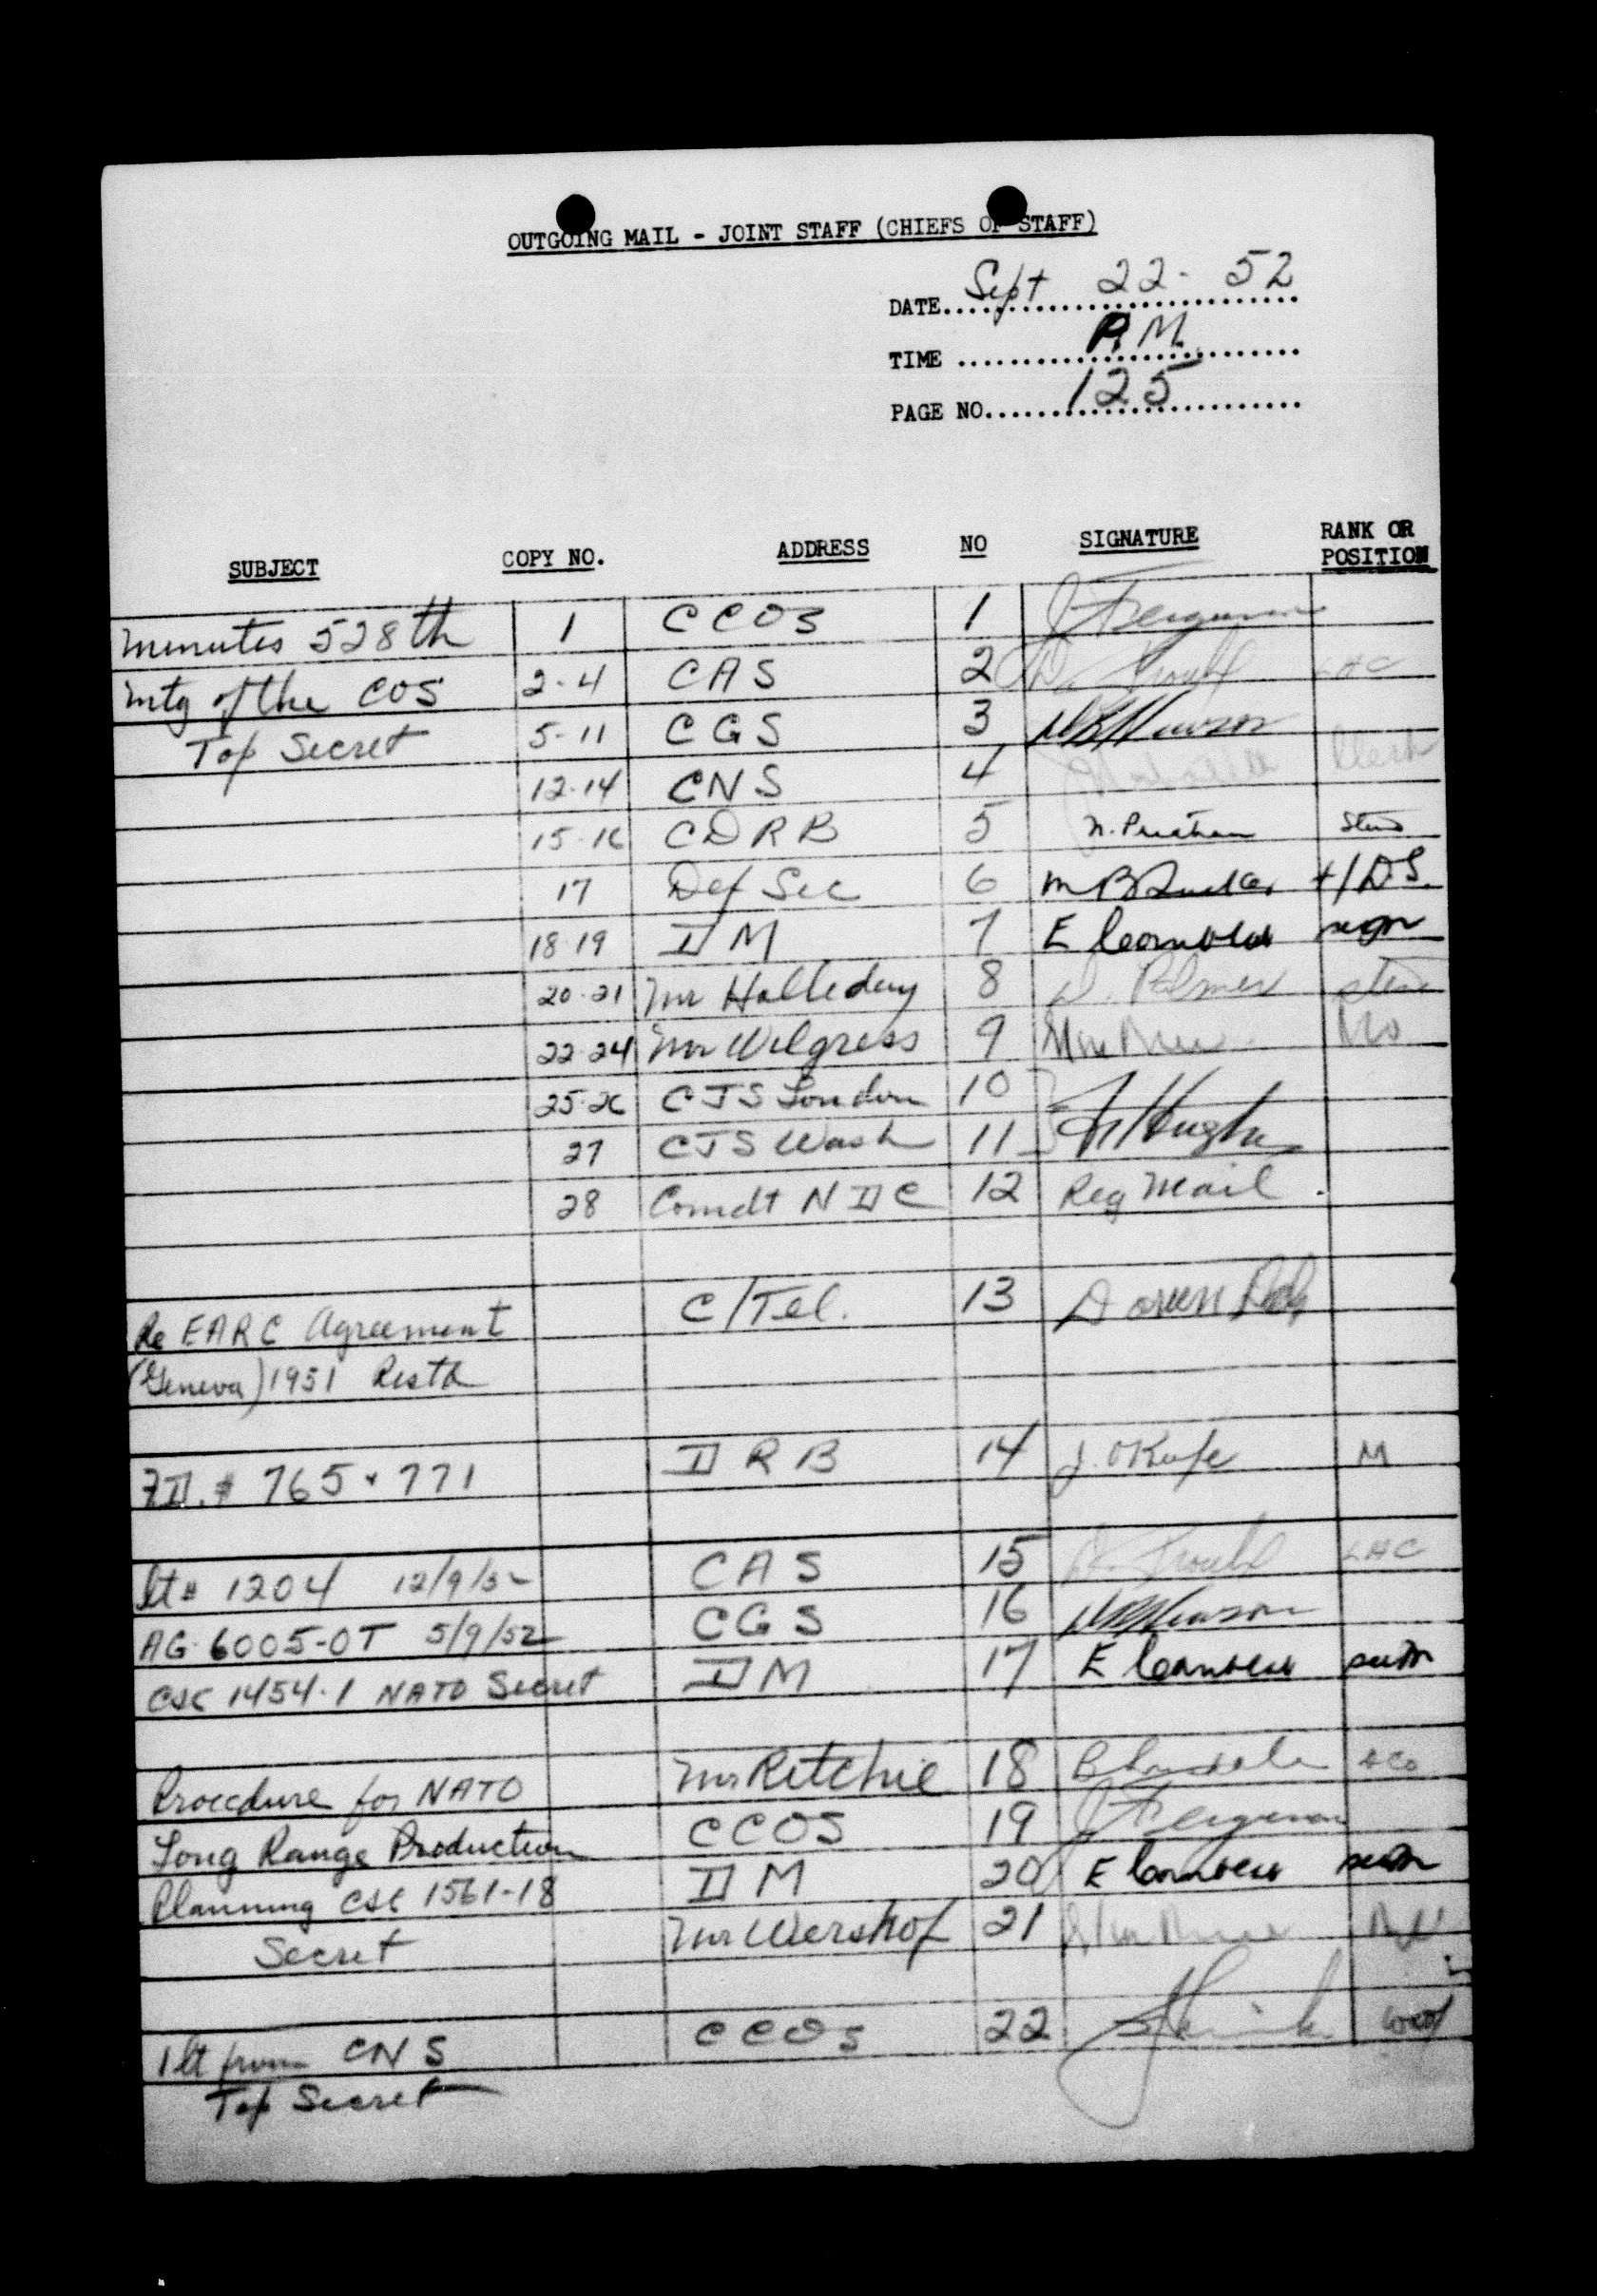 OUTGOING MAIL - JOINT STAFF (CHIEFS OF STAFF)
DATE Sept 22 - 52
TIME P.M.
PAGE NO. 125
SUBJECT COPY NO. ADDRESS NO SIGNATURE RANK OR POSITION
Minutes 528th 1 CCOS 1 J Ferguson
mtg of the COS 2-4 CAS 2 LAC
Top Secret 5-11 CGS 3
12-14 CNS 4 Clerk
15-16 CDRB 5 Steno
17 Def Sec 6
18-19 DM 7 E
20-21 Mr Halleday 8 D. Palmer steno
22-24 Mr Wilgress 9
25-26 CJS London 10
27 CJS Wash 11 Hughes
28 Comdt NDC 12 Reg Mail.
C/Tel. 13 Doreen
Re EARC Agreement
(Geneva) 1951 Restd
DRB 14 J. OKeefe M
FD. # 765 + 771
CAS 15 LAC
lt # 1204 12/9/52 CGS 16
AG 6005-OT 5/9/52 DM 17 E
CSC 1454-1 NATO Secret
Mr Ritchie 18
Procedure for NATO CCOS 19 J Ferguson
Long Range Production DM 20 E
Planning CSC 1561-18 Mr Wershof 21
Secret
CCOS 22
1 lt from CNS
Top Secret